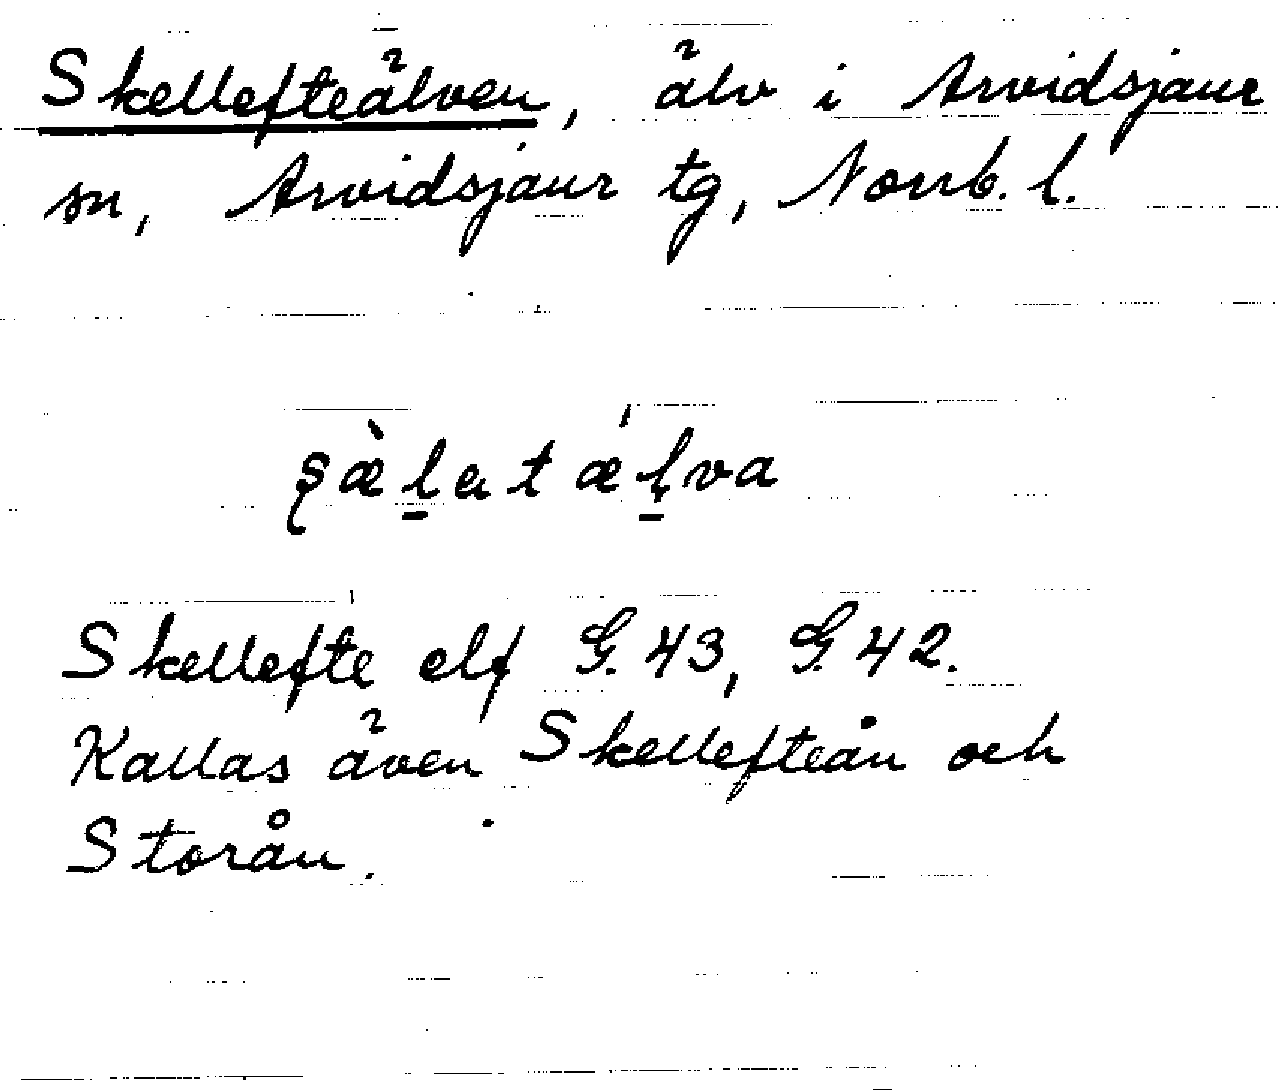 Skellefteälven, älv i Arvidsjaur
sn, Arvidsjaur tg, Norrb. l.
Skellefte elf G. 43, G. 42.
Kallas även Skellefteån och
Storån.